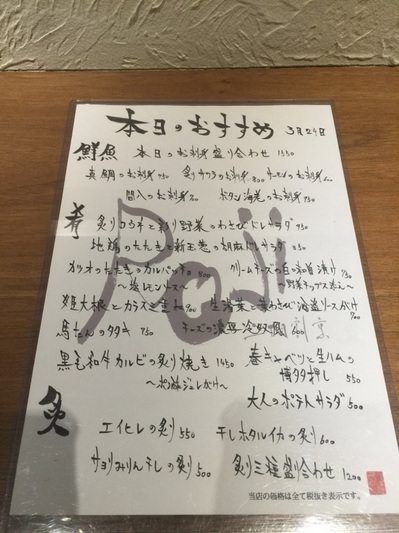 本日のおすすめ 3月24日
鮮魚 本日のお刺身盛り合わせ 1350
真鯛のお刺身 750 炙りサワラのお刺身 800 サーモンのお刺身
間八のお刺身 ボタン海老のお刺身 750
肴 炙りカラチと彩り野菜のわさびドレサラダ 950
地鶏のたたきと新玉葱の胡麻ドレサラダ 850
カツオのたたきのカルパッチョ 800 クリームチーズの白和噌漬け 750
〜塩レモンソース〜 〜野菜チップス添え〜
姫大根とカラスミ重ね 900 生湯葉と葉わさび 海道ソースがけ
900
馬たんのタタキ 750 チーズの濃厚冷奴 600
黒毛和牛カルビの炙り焼き 1450 春キャベツと生ハムの
〜ポン酢ジュレがけ〜 博多押し 550
大人のポテトサラダ 500
炙 エイヒレの炙り 550 干しホタルイカの炙り 600
サヨリみりん干しの炙り 500 炙り三種盛り合わせ 1200
当店の価格は全て税抜き表示です。
Paji